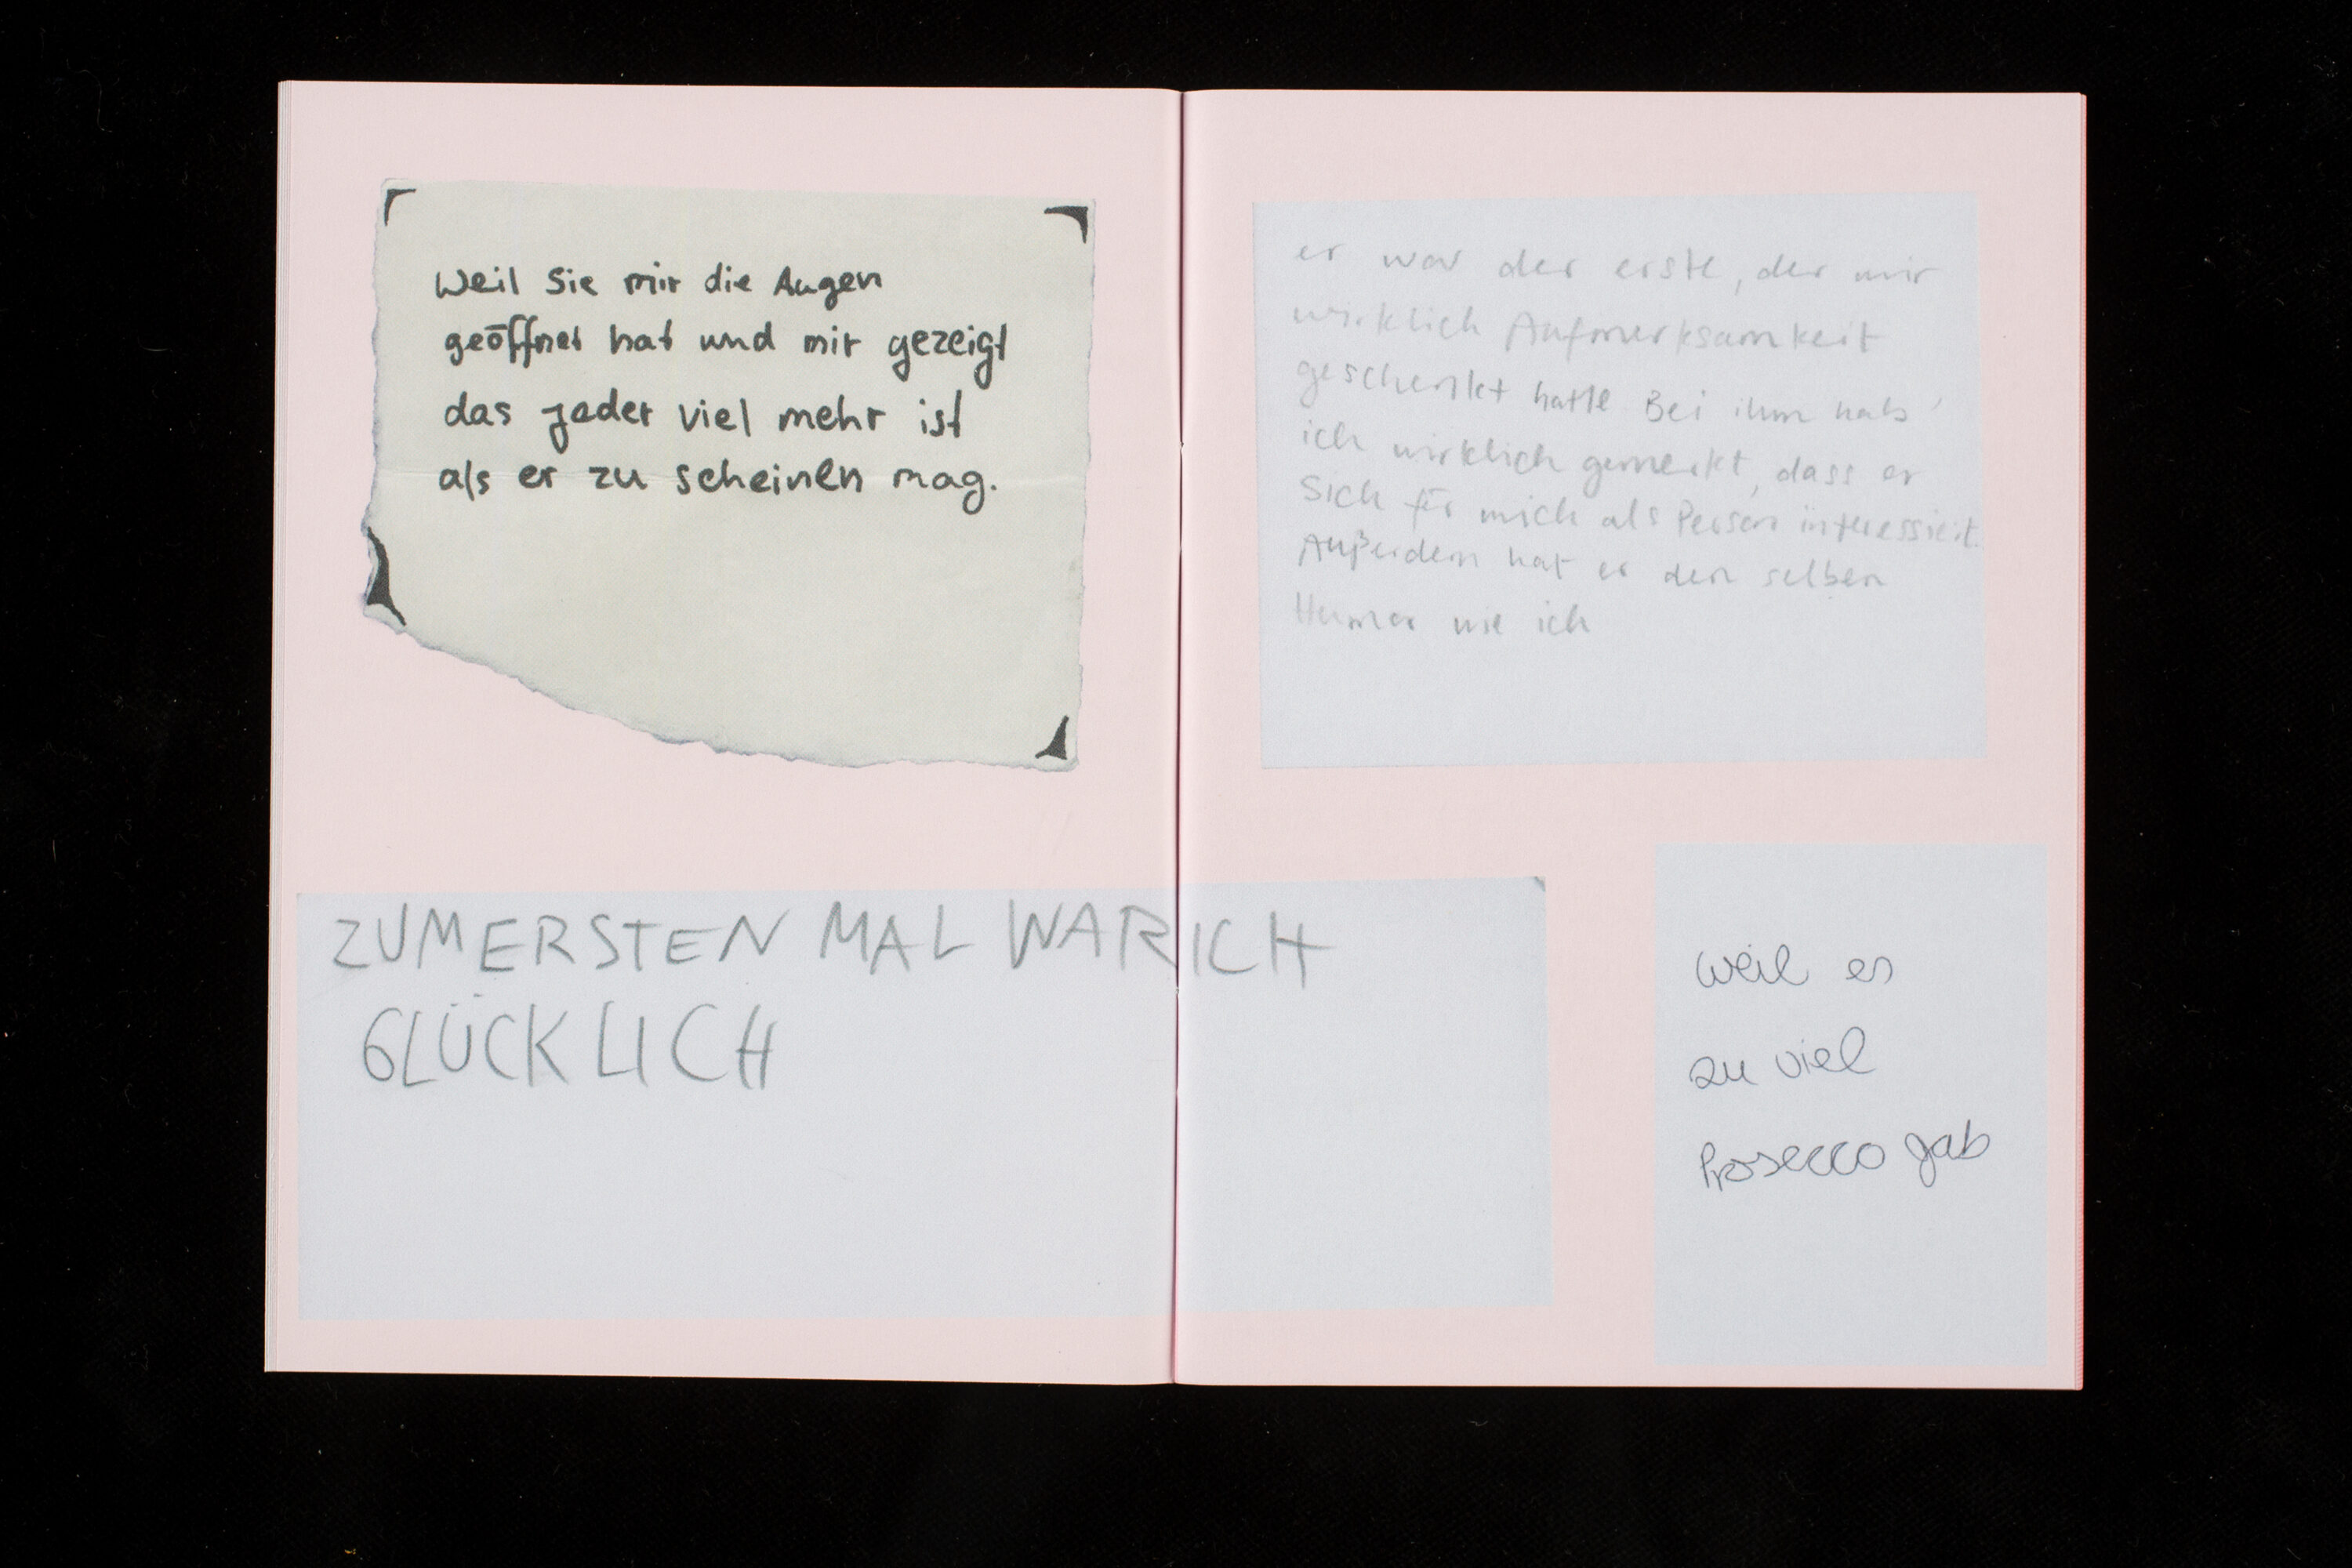 Weil Sie mir die Augen
geöffnet hat und mir gezeigt
das jeder viel mehr ist
als er zu scheinen mag.
er war der erste, der mir
wirklich Aufmerksamkeit
geschenkt hatte Bei ihm hab'
ich wirklich gemerkt, dass er
sich für mich als Person interessiert.
Außerdem hat er den selben
Humor wie ich
ZUM ERSTEN MAL WAR ICH
GLÜCKLICH
weil es
zu viel
Prosecco gab